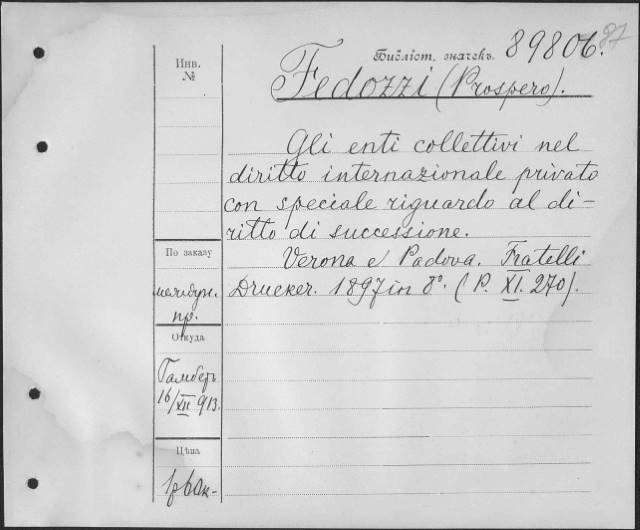 Библіот. значекъ. 89806.
87
Инв.
№
Fedozzi (Prospero).
Gli enti collettivi nel
diritto internazionale privato
con speciale riguardo al di-
ritto di successione.
Verona e Padova. Fratelli
Drucker. 1897 in 8°. (P. XI. 270).
По заказу
междун.
пр.
Откуда
Гамберъ
16/XII 913.
Цѣна
1р 60к-